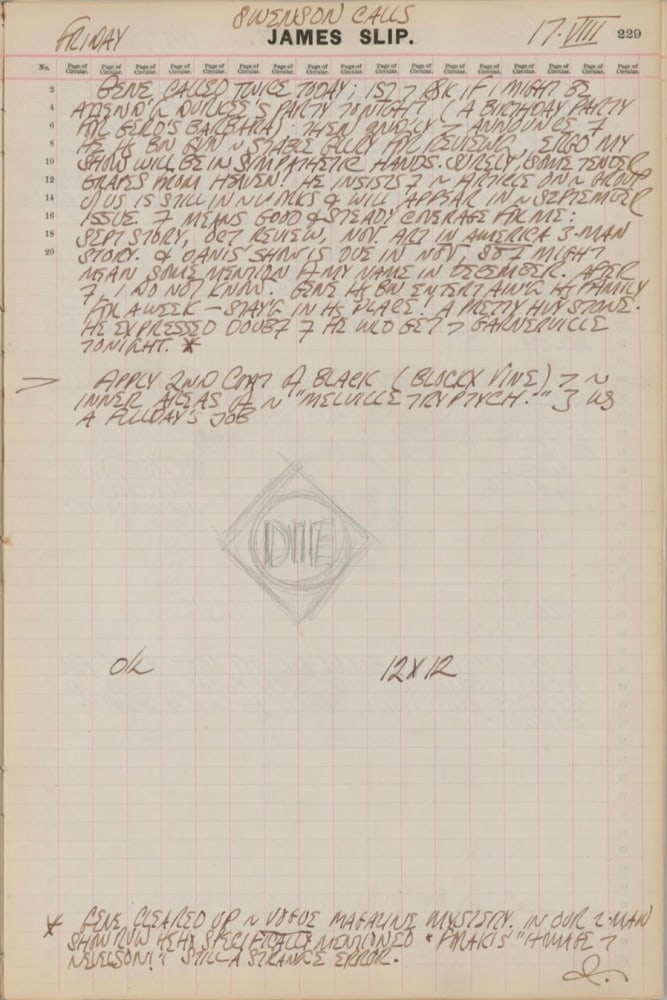 SWENSON CALLS
FRIDAY JAMES SLIP. 17·VIII 229
No. Page of Circular. Page of Circular. Page of Circular. Page of Circular. Page of Circular. Page of Circular. Page of Circular. Page of Circular. Page of Circular. Page of Circular. Page of Circular. Page of Circular. Page of Circular. Page of Circular. Page of Circular. Page of Circular. Page of Circular.
2 GENE CALLED TWICE TODAY: 1ST 7 ASK IF I MIGHT BE
4 ATTEND'G DURLES'S PARTY TONIGHT (A BIRTHDAY PARTY
6 FOR GERD'S BARBARA) THEN 2NDLY 7 ANNOUNCE 7
8 HE HS BN GIVN ~ STABLE GLLRY FR REVIEWING, ERGO MY
10 SHOW WILL BE IN SYMPATHETIC HANDS. SURELY, SOME TENDER
12 GRAPES FROM HEAVEN! HE INSISTS 7 ~ ARTICLE ON ~ GROUP
14 OF US IS STILL IN ~ WORKS & WILL APPEAR IN ~ SEPTEMBER
16 ISSUE. 7 MEANS GOOD & STEADY COVERAGE FR ME:
18 SEPT STORY, OCT REVIEW, NOV. ART IN AMERICA 3-MAN
20 STORY. & DANIS' SHOW IS DUE IN NOV, SO 7 MIGHT
MEAN SOME MENTION OF MY NAME IN DECEMBER. AFTER
7, I DO NOT KNOW. GENE HS BN ENTERTAIN'G HS FAMILY
FR A WEEK – STAY'G IN HS PLACE! A PRETTY HVY STONE.
HE EXPRESSED DOUBT 7 HE WLD GET 7 GARNERVILLE
TONIGHT. *
> APPLY 2ND COAT OF BLACK (BLOCKX VINE) 7 ~
INNER AREAS OF ~ "MELVILLE TRYPTYCH." 3 WS
A FULLDAY'S JOB
DIE
OK 12X12
* GENE CLEARED UP ~ VOGUE MAGAZINE MYSTERY. IN OUR 2-MAN
SHOW REVW HE HD SPECIFICALLY MENTIONED "FORAKIS' "HOMAGE 7
NEVELSON!" STILL A STRANGE ERROR.